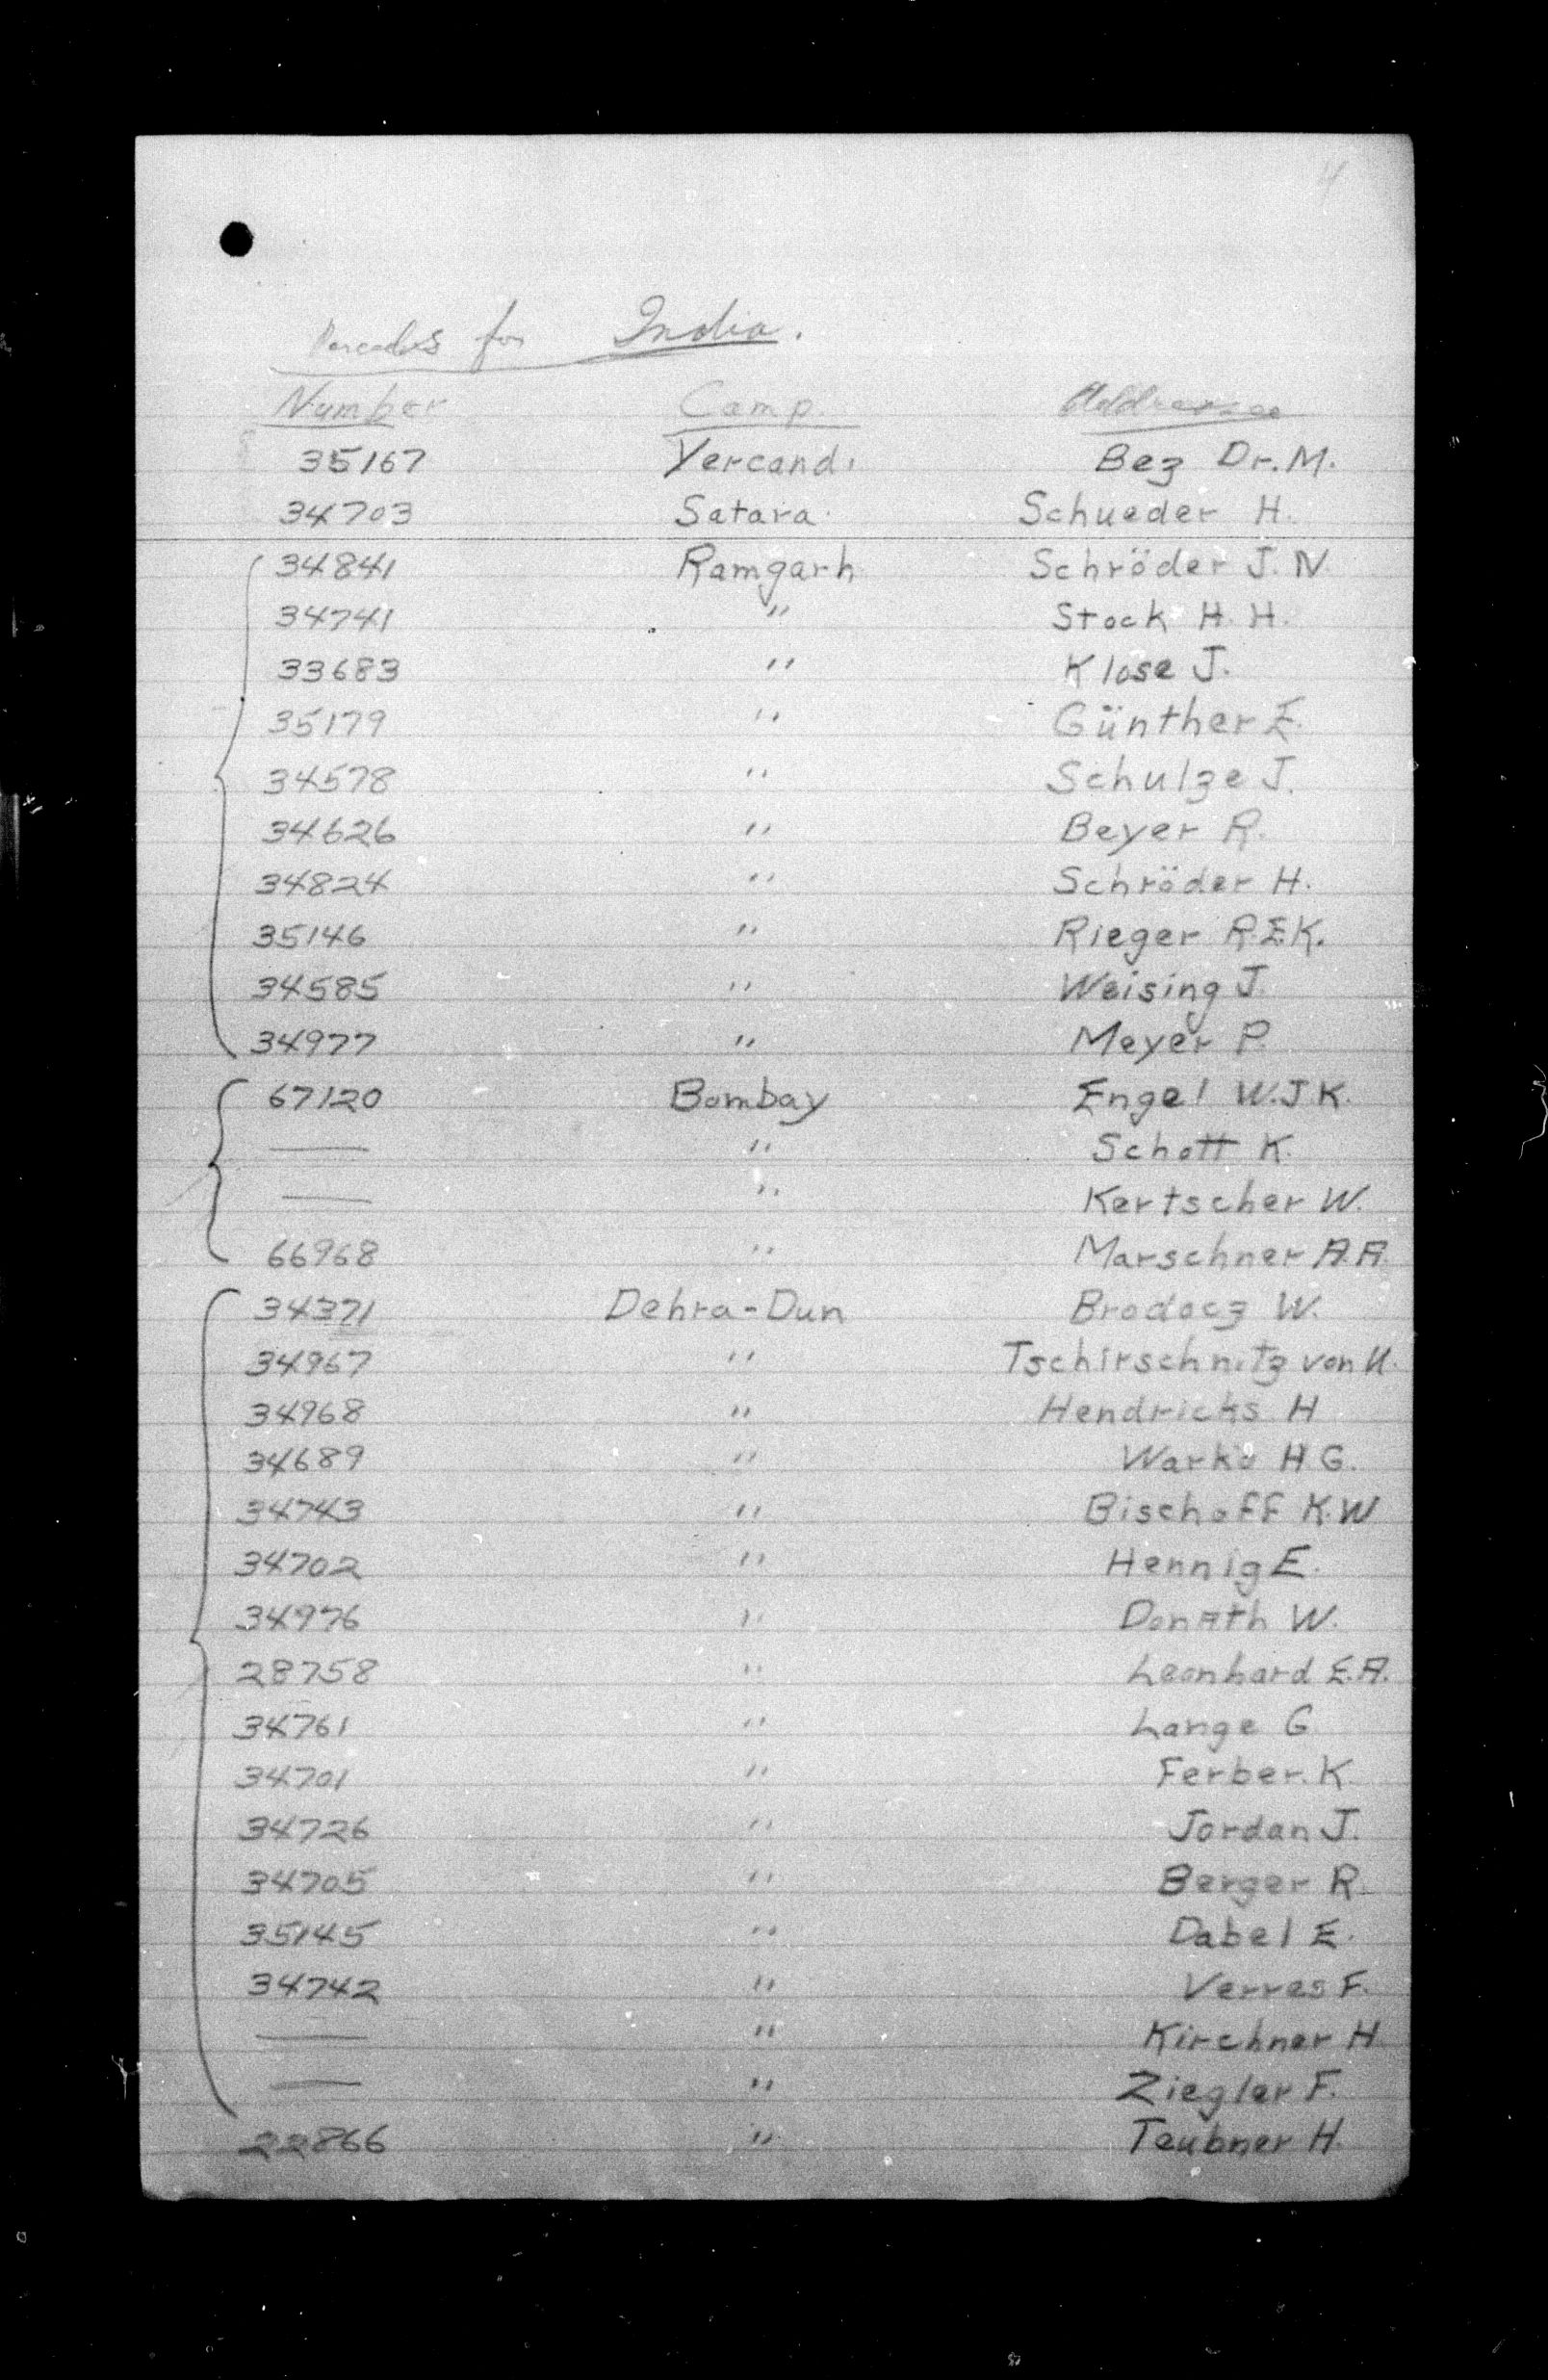 4
Parcels for India.
Number Camp. Addressee
35167 Yercand. Bez Dr. M.
34703 Satara. Schueder H.
34841 Ramgarh Schröder J. N.
34741 " Stock H. H.
33683 " Klose J.
35179 " Günther E.
34578 " Schulze J.
34626 " Beyer R.
34824 " Schröder H.
35146 " Rieger R.E.K.
34585 " Weising J.
34977 " Meyer P.
67120 Bombay Engel W.J.K.
— " Schott K.
— " Kertscher W.
66968 " Marschner A.A.
34371 Dehra-Dun Brodocz W.
34967 " Tschirschnitz von U.
34968 " Hendricks H
34689 " H G.
34743 " Bischoff K.W
34702 " Hennig E.
34976 " Donath W.
28758 " Leonhard E.A.
34761 " Lange G
34701 " Ferber. K.
34726 " Jordan J.
34705 " Berger R.
35145 " Dabel E.
34742 " Verres F.
— " Kirchner H
— " Ziegler F.
22866 " Teubner H.